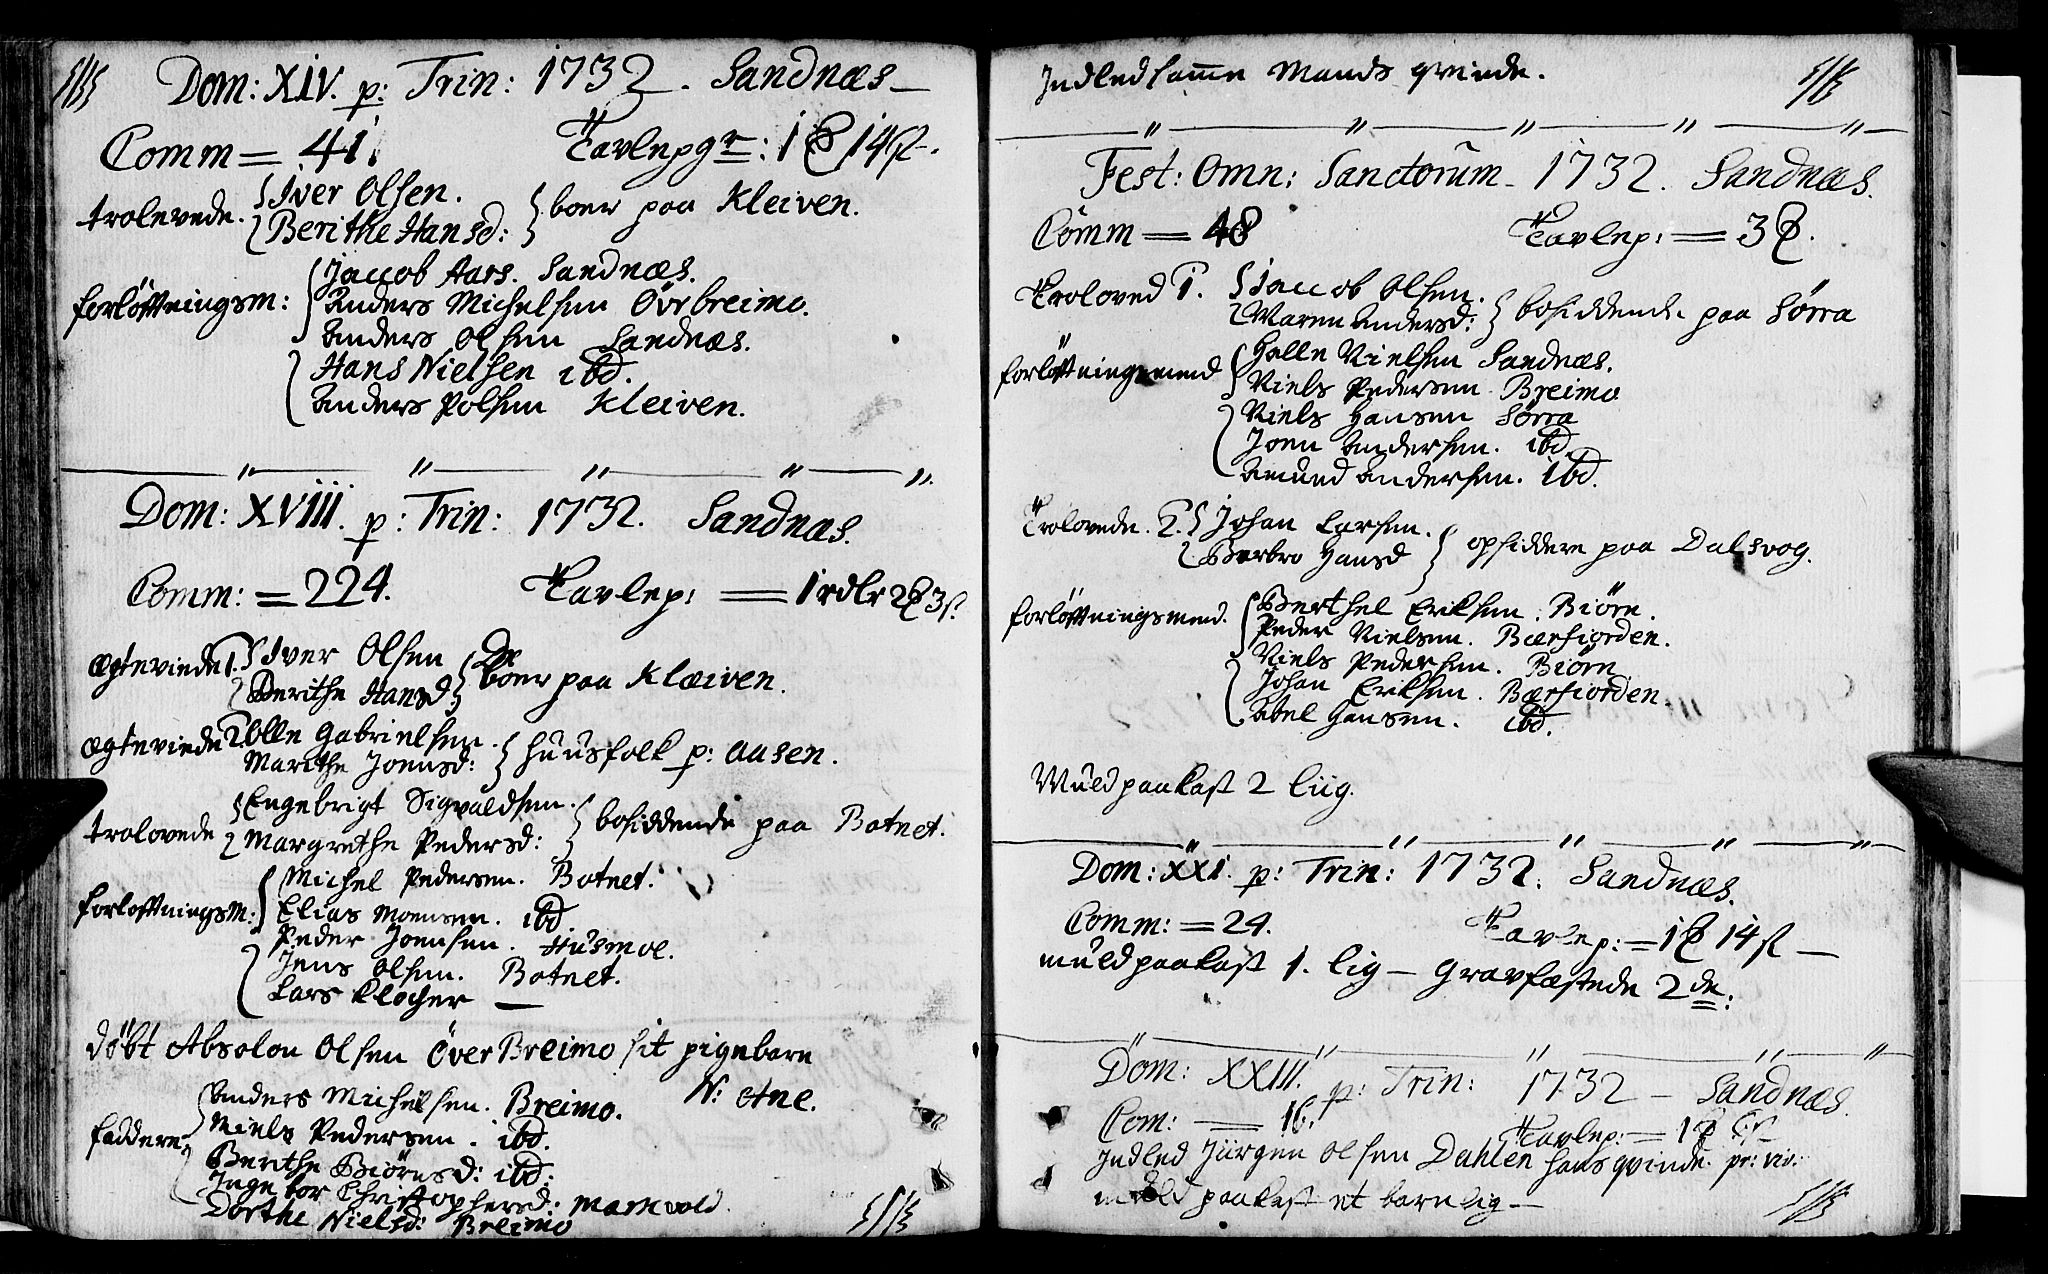 Dom: XIV. p: Trin: 1732. Sandnæs
Comm = 41. Tavlepgr: 1 14 s.
trolevede. Iver Olsen.
Berithe Hansd: boer paa Kleiven.
forløftningsm: Jaccob Aars. Sandnæs.
Anders Michelsen Övrbreimo.
Anders Olsen Sandnæs.
Hans Nielsen ibd.
Anders Polsen Kleiven.
Dom: XVIII. p: Trin: 1732. Sandnæs.
Comm: = 224. Tavlep: = 1 rdlr 2 3 s.
Ægteviede 1. Iver Olsen
Berithe Hansd: boer paa Klæiven.
Ægteviede 2. Olle Gabrielsen.
Marithe Joensd: huusfolk p: Aasen.
trolovede Engebrigt Sigvaldsen.
Margrethe Pedersd: bosiddende paa Botnet.
forløftningsm: Michel Pedersen. Botnet.
Elias Moensen. ibd.
Peder Joensen. Husmoe.
Jens Olsen. Botnet.
Lars Klocher
döbt Absolon Olsen Över Breimo sit pigebarn
N: Ane.
faddere. Anders Michelsen. Breimo.
Niels Pedersen. ibd.
Berthe Biörnsd: ibd:
Ingebor Christophersd:
Dorthe Nielsd: Breimo
Indled samme Mands qvinde.
Fest: Omn: Sanctorum 1732. Sandnæs.
Comm = 48 Tavlep: = 3
Troloved 1. Jaccob Olsen.
Maren Andersd: bosiddende paa Sørra
forløftningsmend Halle Nielsen Sandnæs.
Niels Pedersen Breimo
Niels Hansen Sørra
Joen Andersen. ibd.
Amund Andersen. ibd.
Trolovede. 2. Johan Larsen.
Berbro Hansd opsiddere paa Dalsvog.
forløftningsmend. Berthel Eriksen. Biörn.
Peder Nielsen. Bærfiorden.
Niels Pedersen. Biörn
Johan Eriksen. Bærfiorden.
Abel Hansen. ibd.
Muld paakast 2 Liig.
Dom: XXI. p: Trin: 1732. Sandnæs.
Comm: = 24. Tavlep: = 1 14 s
muld paakast 1. lig — Gravfæstede 2de:
Dom: XXIII. p: Trin: 1732 — Sandnæs.
Com: — 16. Tavlep: = 1
Indled Jürgen Olsen Dahlen hans qvinde.
muld paakast et barnelig —